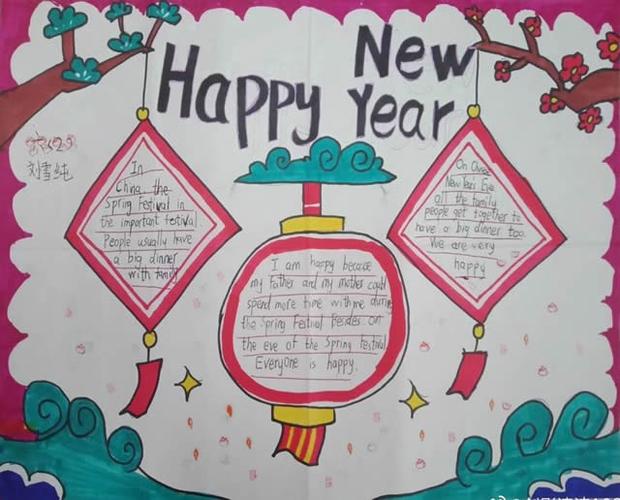 Happy New Year
刘雪纯
In
China, the
Spring Festival in
the important festival.
People usually have
a big dinner
with family
On
New Year's Eve
all the family
people get together to
have a big dinner too.
We are very
happy
I am happy because
my father and my mother could
spend more time with me during
the Spring Festival Besides on
the eve of the Spring Festival
Everyone is happy.